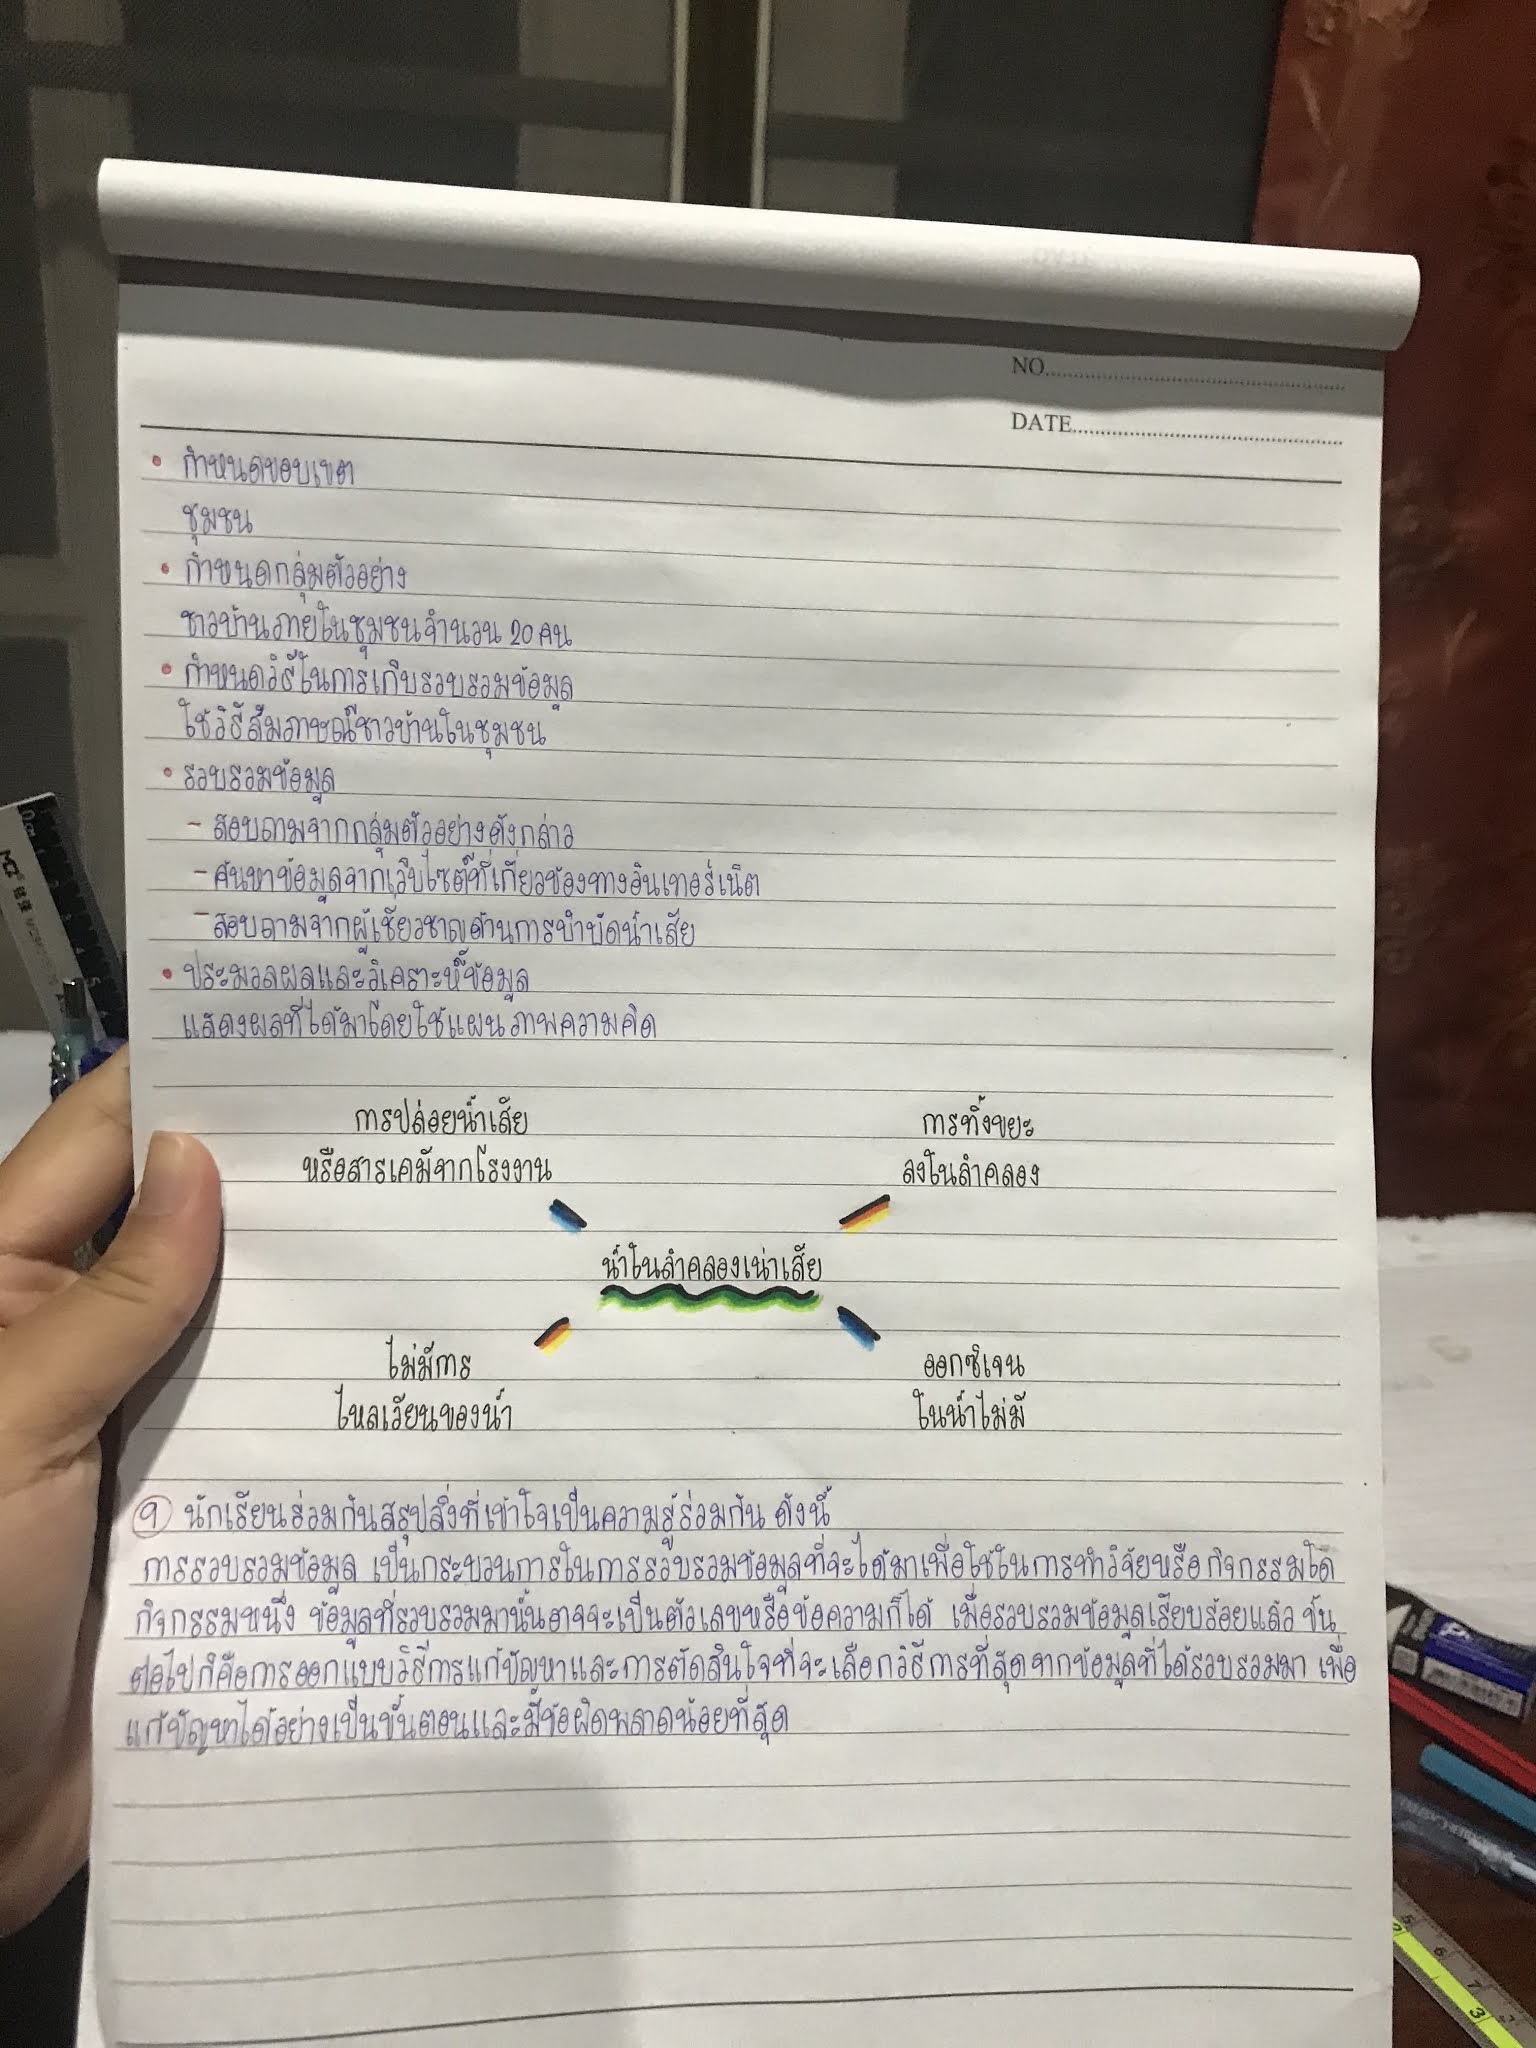 NO.
DATE.
• กำหนดขอบเขต
ชุมชน
• กำหนดกลุ่มตัวอย่าง
ชาวบ้านภายในชุมชนจำนวน 20 คน
• กำหนดวิธีในการเก็บรวบรวมข้อมูล
ใช้วิธีสัมภาษณ์ชาวบ้านในชุมชน
• รวบรวมข้อมูล
- สอบถามจากกลุ่มตัวอย่างดังกล่าว
- ค้นหาข้อมูลจากเว็บไซต์ที่เกี่ยวข้องทางอินเทอร์เน็ต
- สอบถามจากผู้เชี่ยวชาญด้านการบำบัดน้ำเสีย
• ประมวลผลและวิเคราะห์ข้อมูล
แสดงผลที่ได้มาโดยใช้แผนภาพความคิด
การปล่อยน้ำเสีย
หรือสารเคมีจากโรงงาน
การทิ้งขยะ
ลงในลำคลอง
น้ำในลำคลองเน่าเสีย
ไม่มีการ
ไหลเวียนของน้ำ
ออกซิเจน
ในน้ำไม่มี
นักเรียนร่วมกันสรุปสิ่งที่เข้าใจเป็นความรู้ร่วมกัน ดังนี้
การรวบรวมข้อมูล เป็นกระบวนการในการรวบรวมข้อมูลที่จะได้มาเพื่อใช้ในการทำวิจัยหรือกิจกรรมใด
กิจกรรมหนึ่ง ข้อมูลที่รวบรวมมานั้นอาจจะเป็นตัวเลขหรือข้อความก็ได้ เมื่อรวบรวมข้อมูลเรียบร้อยแล้ว ขั้น
ต่อไปก็คือการออกแบบวิธีการแก้ปัญหาและการตัดสินใจที่จะเลือกวิธีการที่สุดจากข้อมูลที่ได้รวบรวมมา เพื่อ
แก้ปัญหาได้อย่างเป็นขั้นตอนและมีข้อผิดพลาดน้อยที่สุด